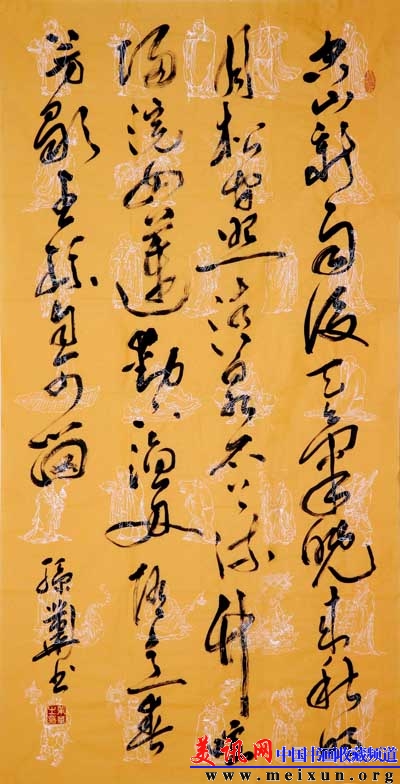 空山新雨後天氣晚来秋明
月松间照清泉石上流竹喧
歸浣女蓮動下漁舟随意春
芳歇王孫自可留
孫 书
美讯网 中国书画收藏频道
www.meixun.org